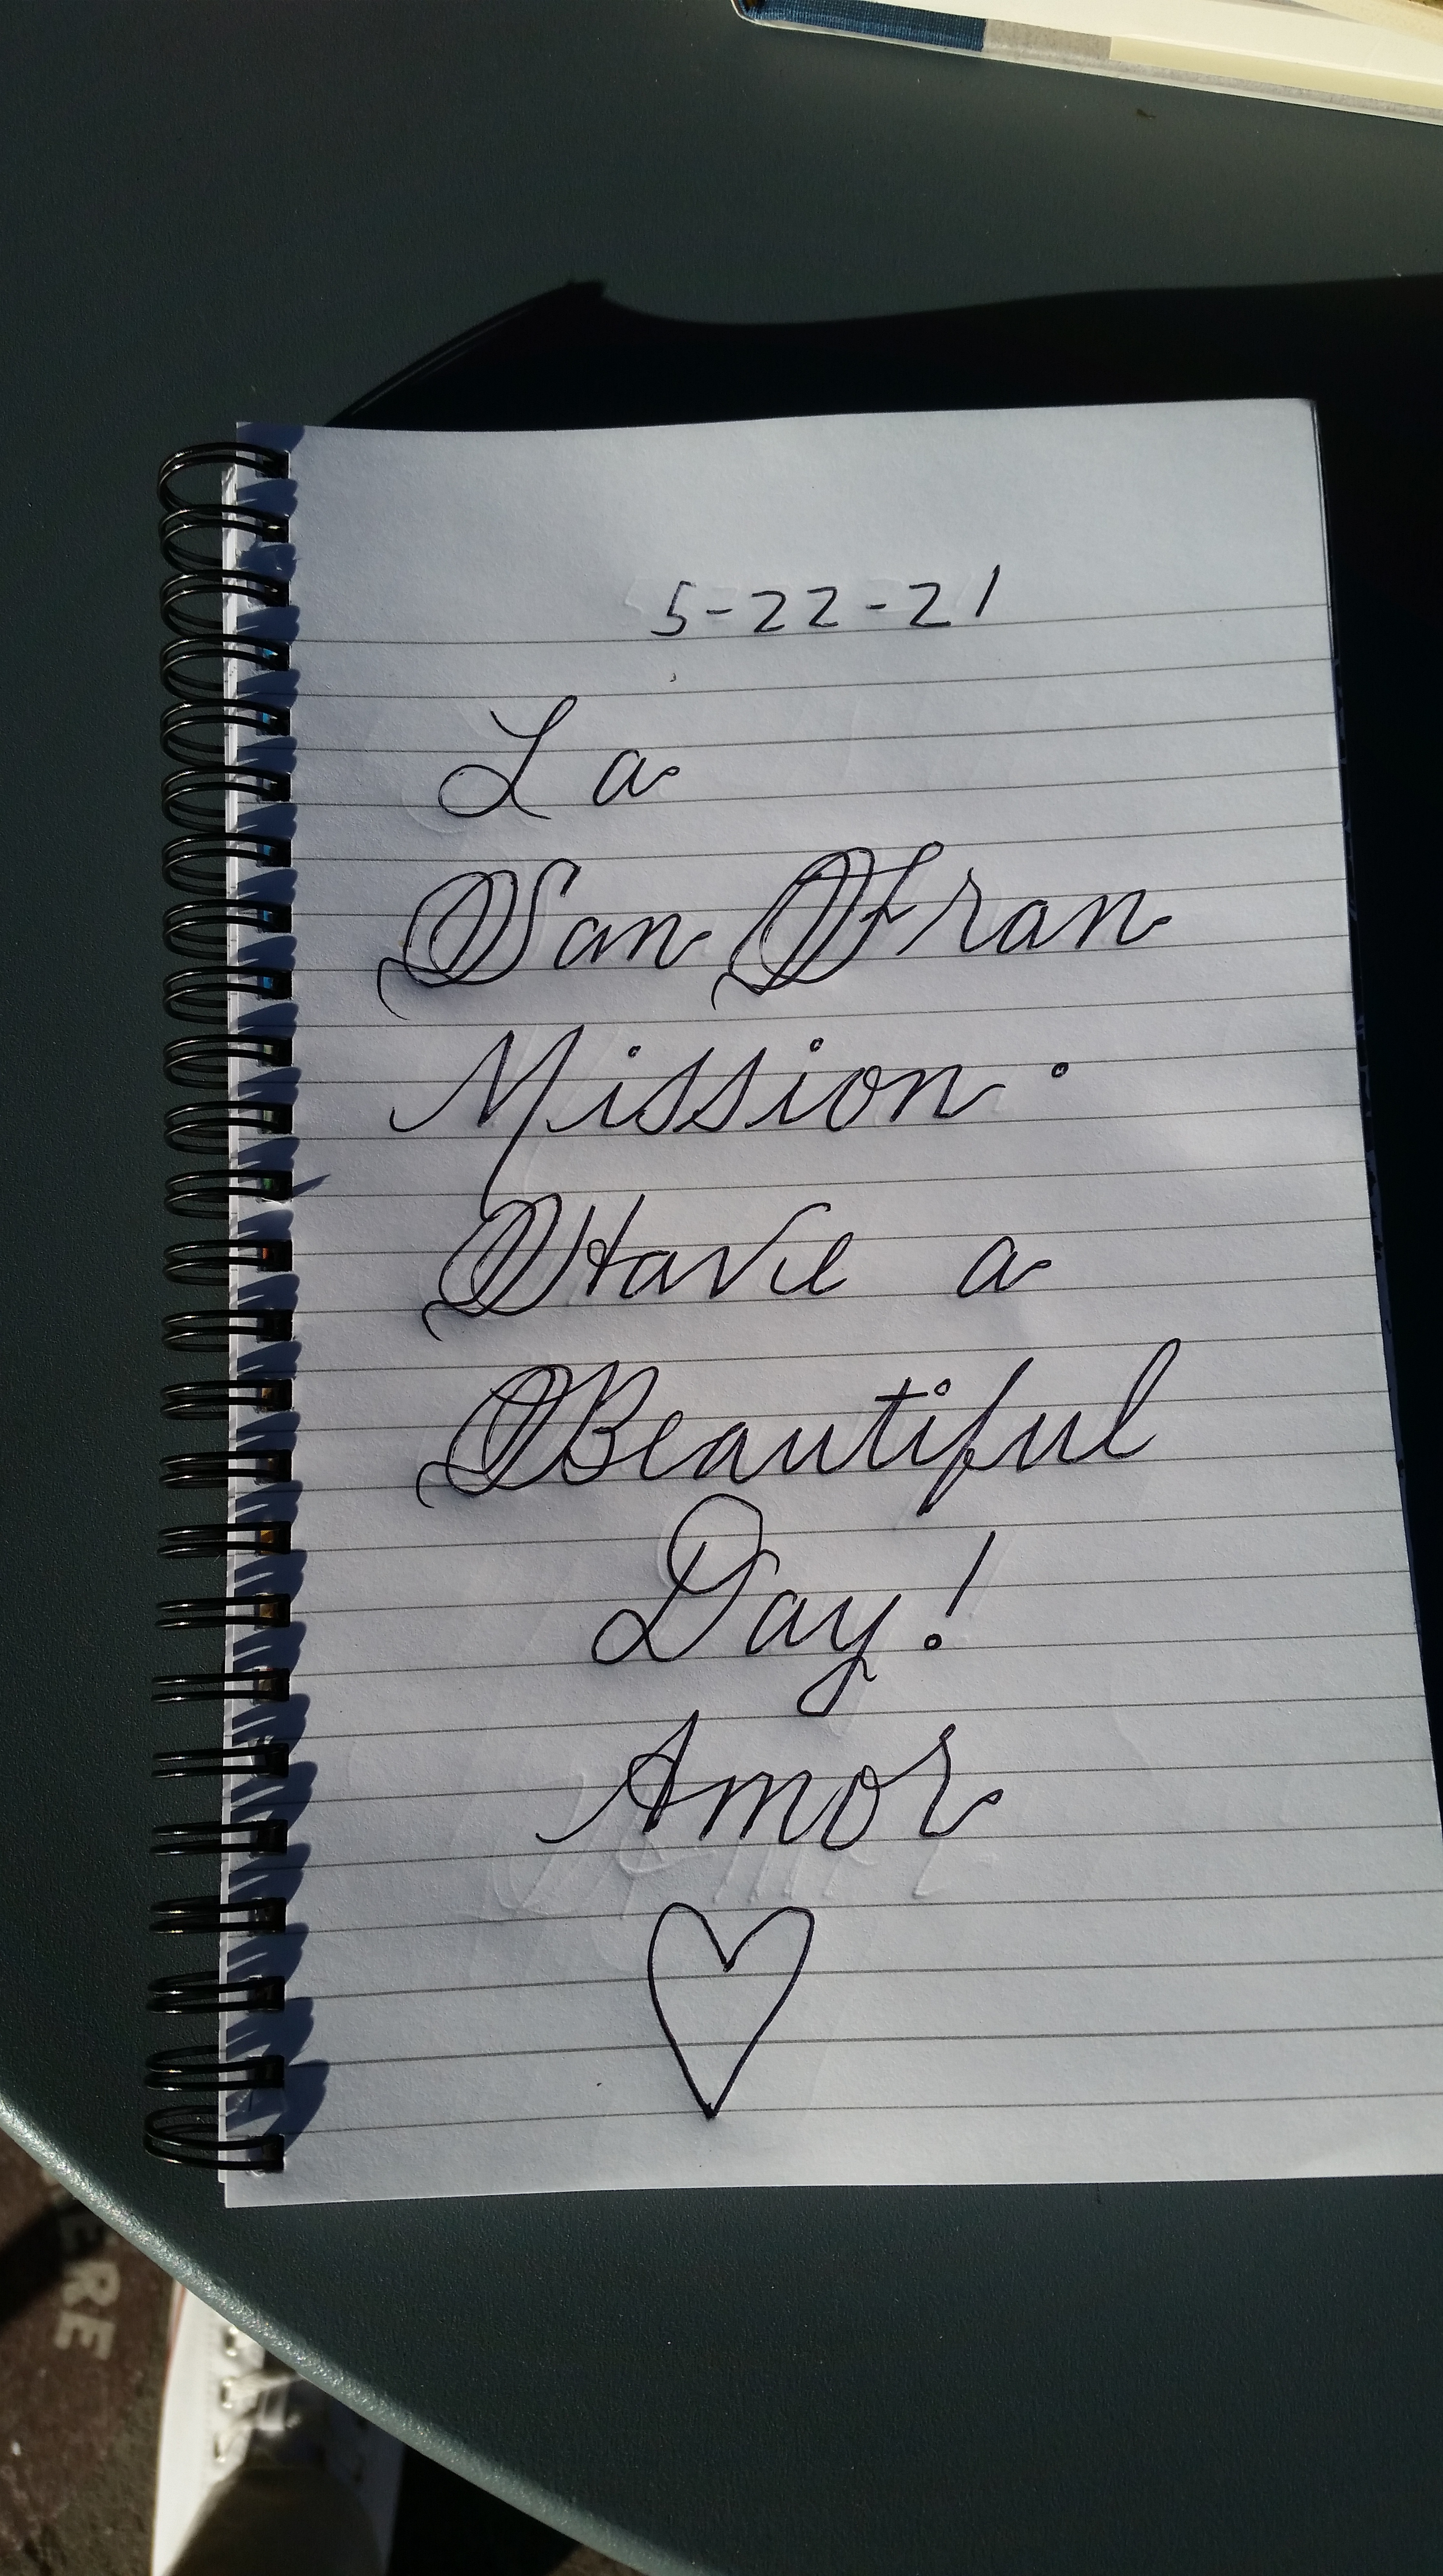 5-22-21
La
San Fran
Mission.
Have a
Beautiful
Day!
Amor
ERE